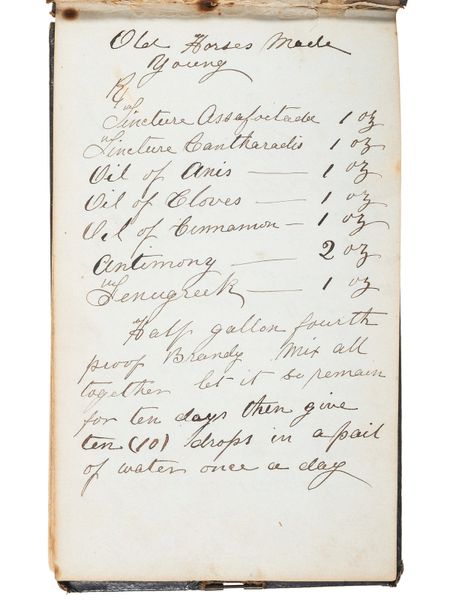 Old Horses Made
Young
℞
Tincture Assafoetadae 1 oz
Tincture Cantharadis 1 oz
Oil of Anis — 1 oz
Oil of Cloves — 1 oz
Oil of Cinnamon — 1 oz
Antimony — 2 oz
Fenugreek — 1 oz
Half gallon fourth
proof Brandy Mix all
together let it so remain
for ten days then give
ten (10) drops in a pail
of water once a day